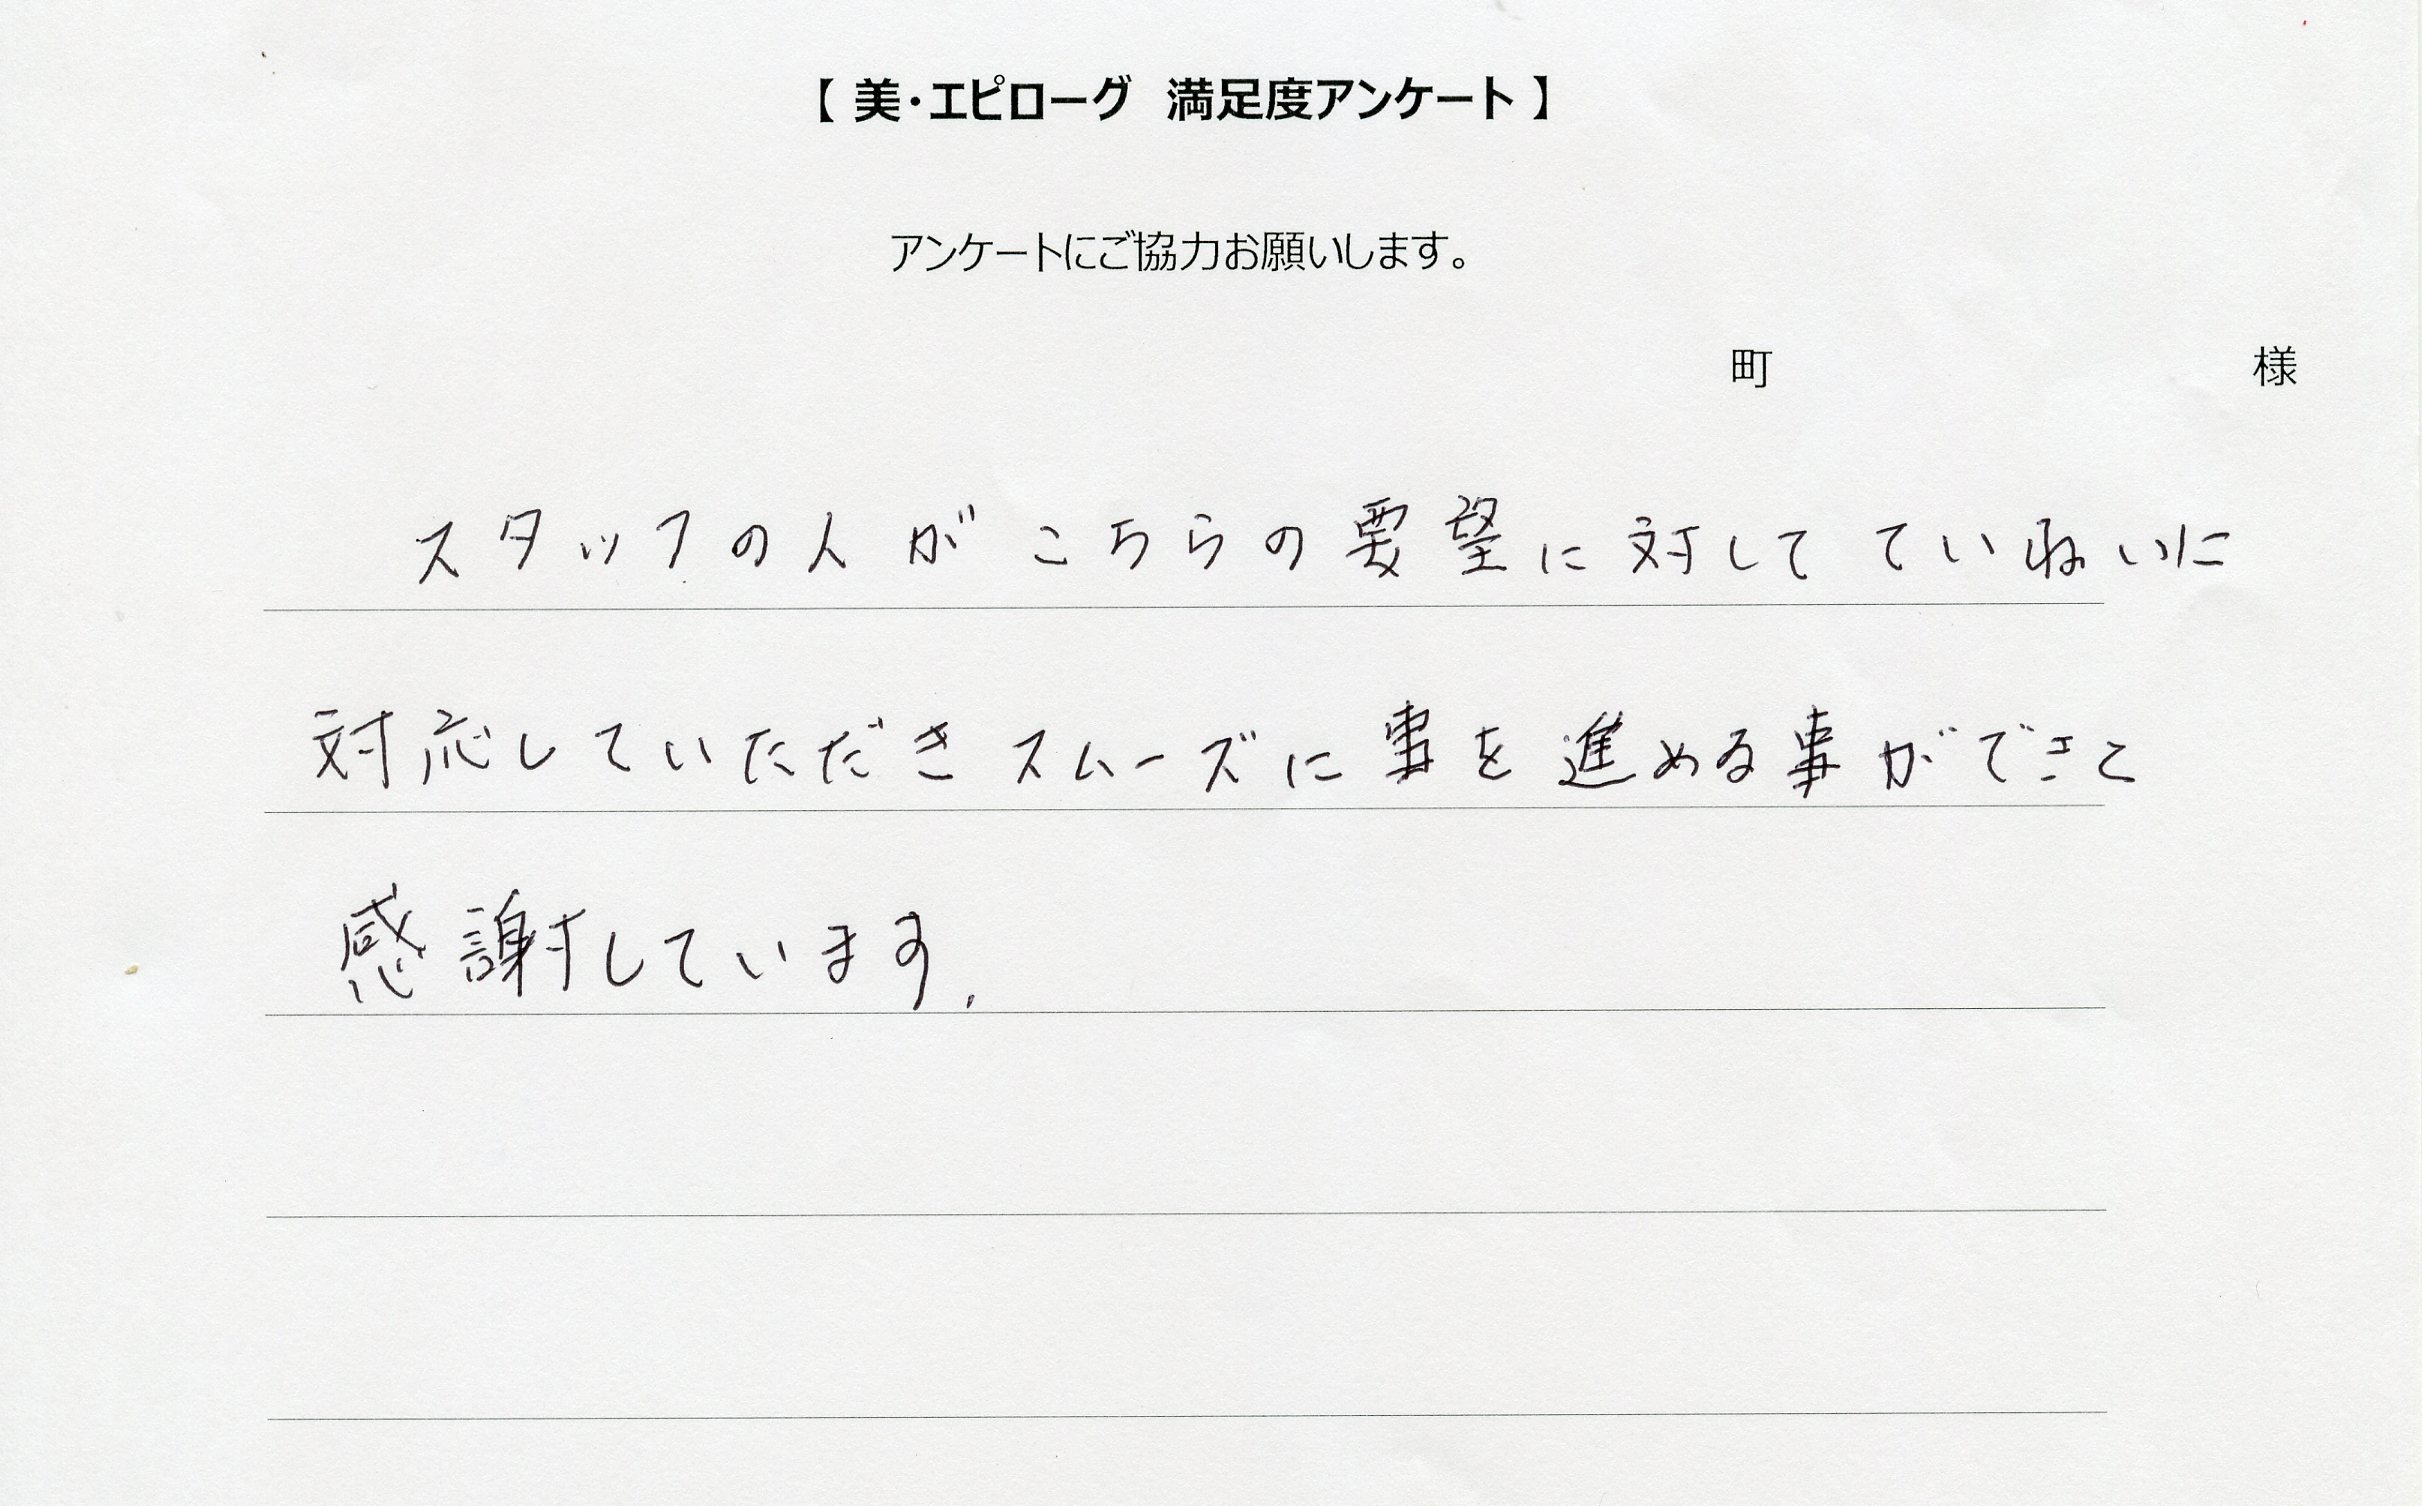 【 美・エピローグ 満足度アンケート 】
アンケートにご協力お願いします。
町 様
スタッフの人がこちらの要望に対してていねいに
対応していただきスムーズに事を進める事ができて
感謝しています.